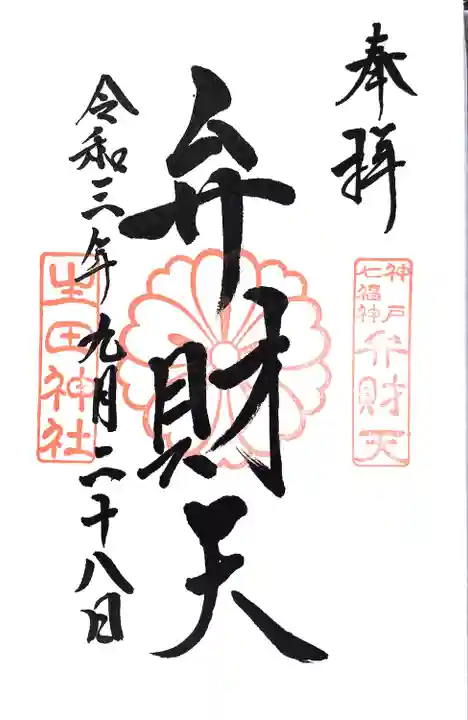 奉拝
神戸
七福神
弁財天
弁財天
令和三年九月二十八日
生田神社